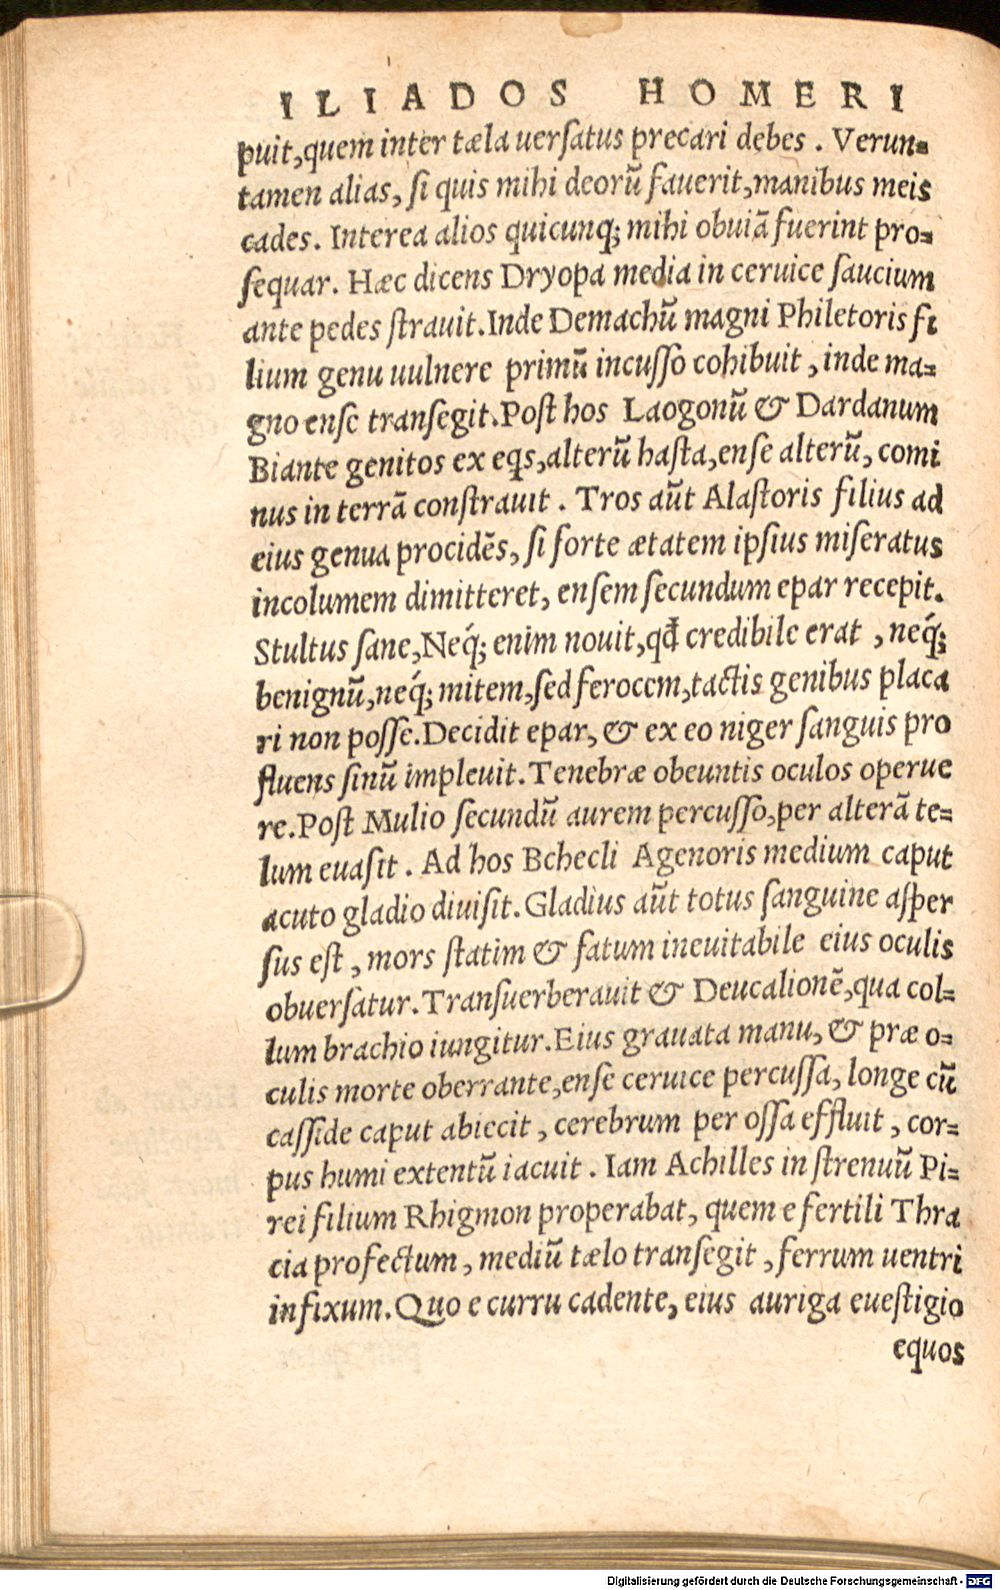 ILIADOS HOMERI
puit, quem inter tæla uerſatus precari debes. Verun=
tamen alias, ſi quis mihi deorũ fauerit, manibus meis
cades. Interea alios quicunq; mihi obuiã fuerint pro=
ſequar. Hæc dicens Dryopa media in ceruice ſaucium
ante pedes ſtrauit. Inde Demachũ magni Philetoris fi
lium genu uulnere primũ incuſſo cohibuit, inde ma=
gno enſe tranſegit. Poſt hos Laogonũ & Dardanum
Biante genitos ex eqs, alterũ haſta, enſe alterũ, comi
nus in terrã conſtrauit. Tros aũt Alaſtoris filius ad
eius genua procidẽs, ſi forte ætatem ipſius miſeratus
incolumem dimitteret, enſem ſecundum epar recepit.
Stultus ſane, Neq́; enim nouit, qđ credibile erat, neq́;
benignũ, neq́; mitem, ſed ferocem, tactis genibus placa
ri non poſſe. Decidit epar, & ex eo niger ſanguis pro
fluens ſinũ impleuit. Tenebræ obeuntis oculos operue
re. Poſt Mulio ſecundũ aurem percuſſo, per alterã te=
lum euaſit. Ad hos Echecli Agenoris medium caput
acuto gladio diuiſit. Gladius aũt totus ſanguine aſper
ſus eſt, mors ſtatim & fatum ineuitabile eius oculis
obuerſatur. Tranſuerberauit & Deucalionẽ, qua col=
lum brachio iungitur. Eius grauata manu, & præ o=
culis morte oberrante, enſe ceruice percuſſa, longe cũ
caſſide caput abiecit, cerebrum per oſſa effluit, cor=
pus humi extentũ iacuit. Iam Achilles in ſtrenuũ Pi=
rei filium Rhigmon properabat, quem e fertili Thra
cia profectum, mediũ tælo tranſegit, ferrum uentri
infixum. Quo e curru cadente, eius auriga eueſtigio
equos
Digitalisierung gefördert durch die Deutsche Forschungsgemeinschaft - DFG